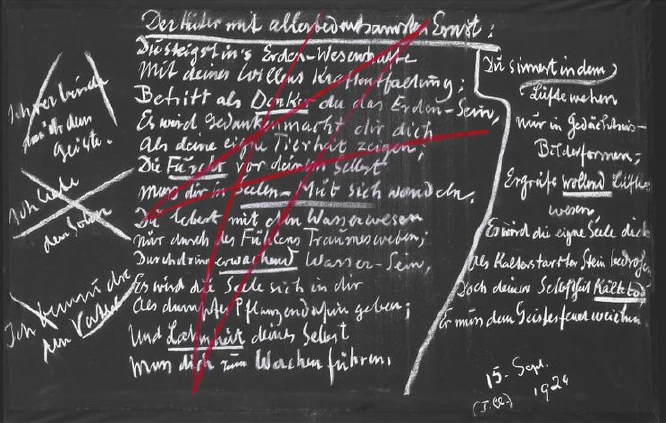 Der Hüter mit allerbedeutsamstem Ernst:
Du steigst in's Erden-Wesenhafte
Mit deines Willens Kraftentfaltung;
Betritt als Denker du das Erden-Sein,
Es wird Gedankenmacht dir dich
Als deine eigne Tierheit zeigen;
Die Furcht vor deinem Selbst
muss dir in Seelen-Mut sich wandeln.
Du lebest mit dem Wasserwesen
nur durch des Fühlens Traumesweben;
Durchdring erwachend Wasser-Sein,
Es wird die Seele sich in dir
Als dumpfes Pflanzendasein geben;
Und Lahmheit deines Selbst
muss dich zum Wachen führen.
Du sinnest in dem
Lüftewehen
nur in Gedächtnis-
Bilderformen;
Ergreife wollend Lüfte
wesen,
Es wird die eigne Seele dich
Als kalterstarrter Stein bedrohn;
Doch deiner Selbstheit Kältetod
Er muss dem Geistesfeuer weichen.
Geiste.
Ich liebe
den Sohn
Ich
den Vater
15. Sept.
1924